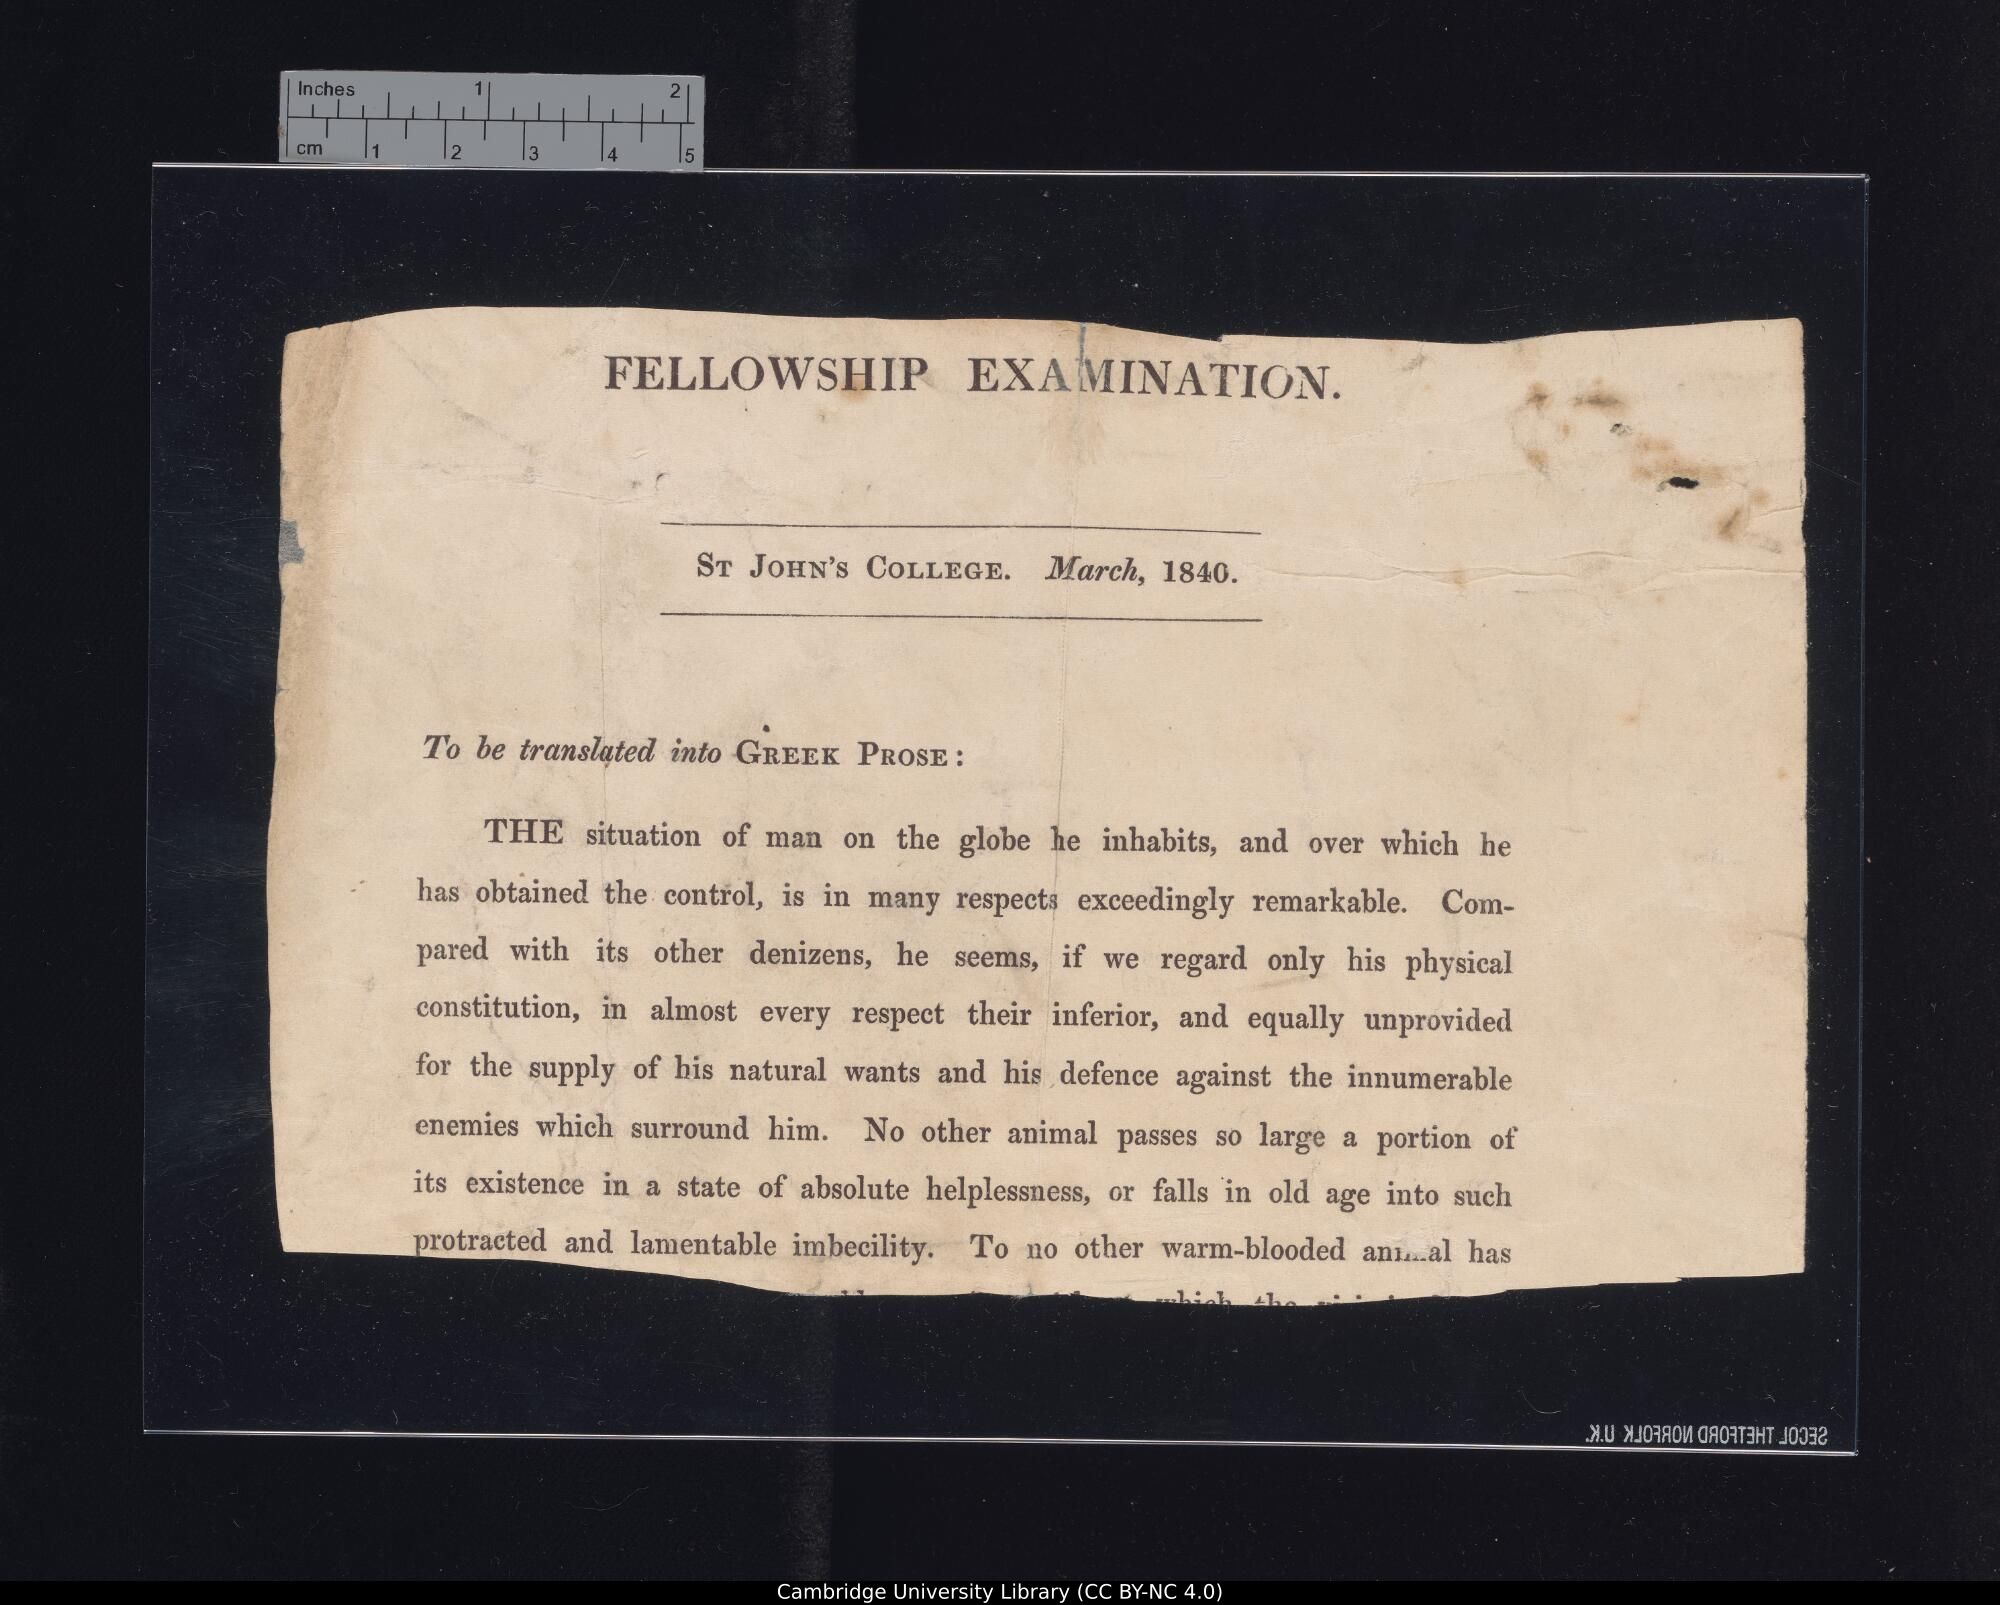 Inches 1 2
cm 1 2 3 4 5
FELLOWSHIP EXAMINATION.
ST JOHN'S COLLEGE. March, 1840.
To be translated into GREEK PROSE:
THE situation of man on the globe he inhabits, and over which he
has obtained the control, is in many respects exceedingly remarkable. Com-
pared with its other denizens, he seems, if we regard only his physical
constitution, in almost every respect their inferior, and equally unprovided
for the supply of his natural wants and his defence against the innumerable
enemies which surround him. No other animal passes so large a portion of
its existence in a state of absolute helplessness, or falls in old age into such
protracted and lamentable imbecility. To no other warm-blooded animal has
which the
SECOL THETFORD NORFOLK U.K.
Cambridge University Library (CC BY-NC 4.0)